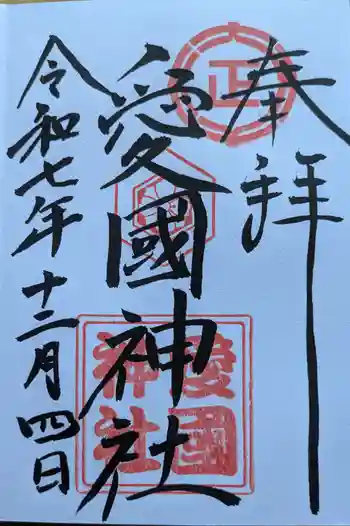 奉拝
愛國神社
令和七年十二月四日
正
愛國
神社